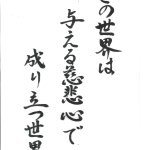 の世界は
与える慈悲心で
成り立つ世界